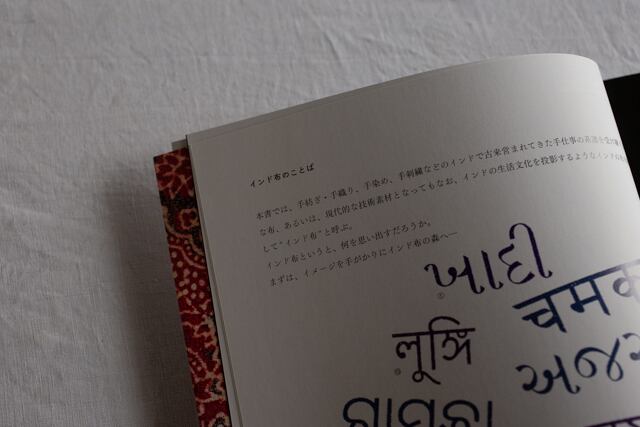 インド布のことば
本書では、手紡ぎ・手織り、手染め、手刺繍などのインドで古来営まれてきた手仕事の系譜を受け
な布、あるいは、現代的な技術素材となってもなお、インドの生活文化を投影するようなインドの
して“インド布”と呼ぶ。
インド布というと、何を思い出すだろうか。
まずは、イメージを手がかりにインド布の森へ―
ખાદી
चमक
लूङ्गि
અજર